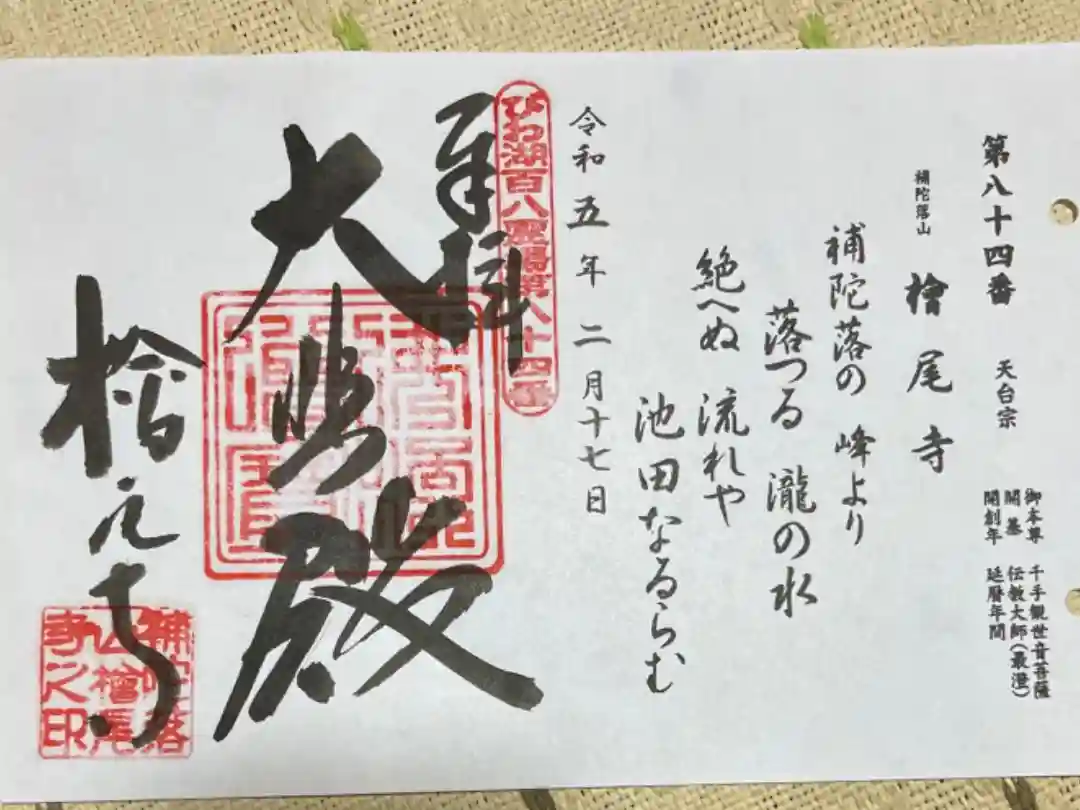 第八十四番 天台宗
御本尊 千手観世音菩薩
開基 伝教大師(最澄)
開創年 延暦年間
補陀落山 檜尾寺
補陀落の 峰より
落つる 瀧の水
絶へぬ 流れや
池田なるらむ
令和五年二月十七日
びわ湖百八霊場第八十四番
奉拝
大悲殿
檜尾寺
補陀落
山檜尾
寺之印